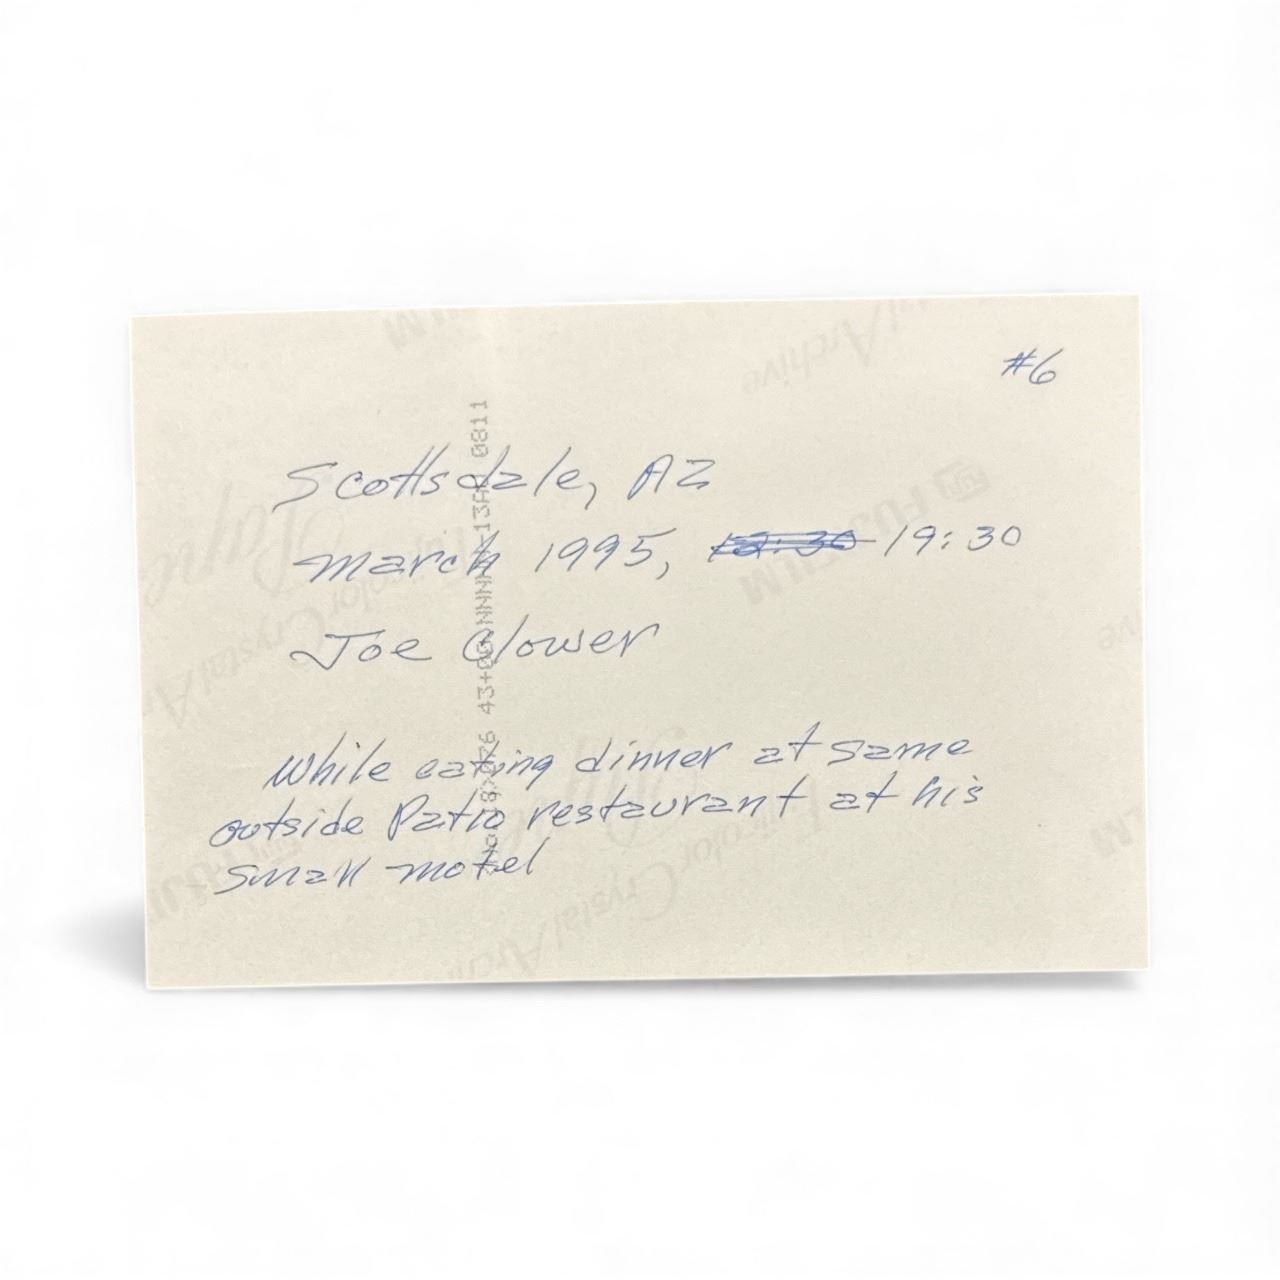 #6
Scottsdale, AZ
March 1995, 19:30
Joe Clower
While eating dinner at same
outside Patio restaurant at his
small motel
FUJIFILM
Fujicolor Crystal Archive